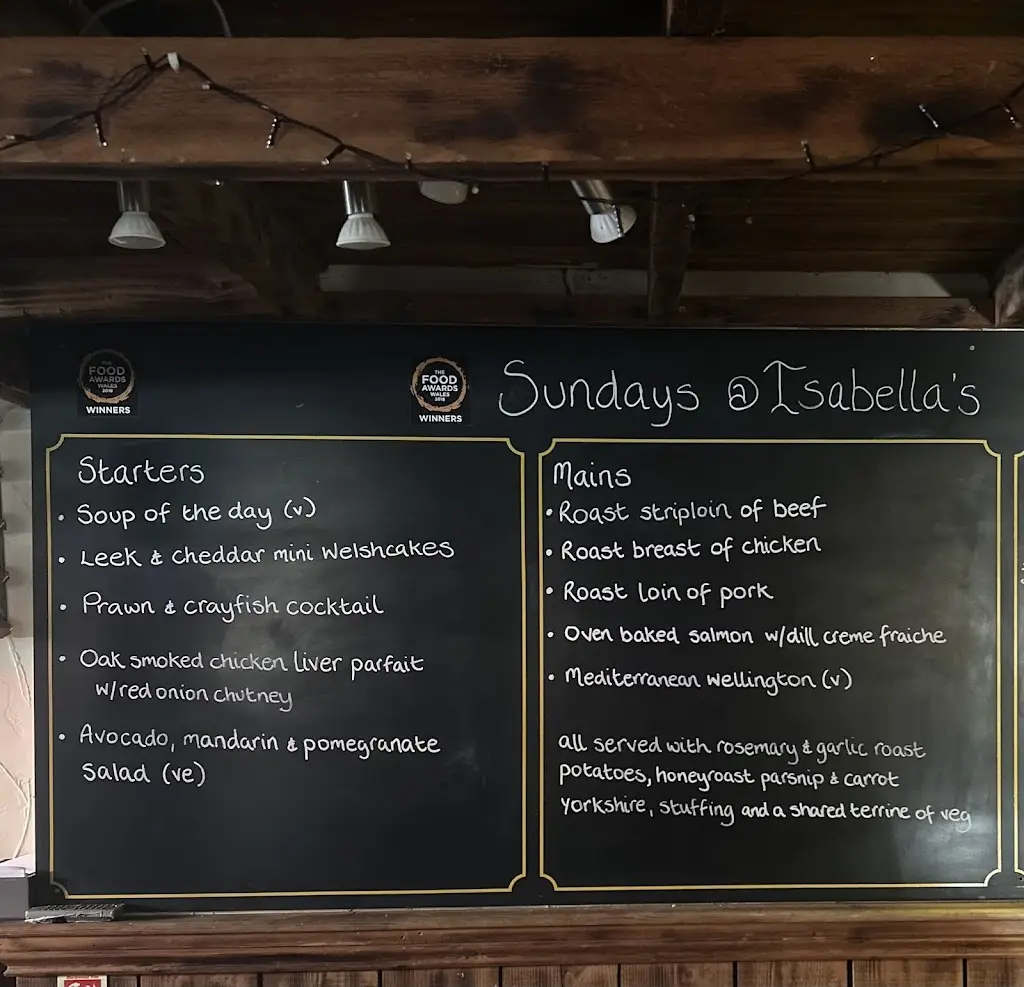 THE
FOOD
AWARDS
WALES
2018
WINNERS
THE
FOOD
AWARDS
WALES
2018
WINNERS
Sundays @Isabella's
Starters
• Soup of the day (v)
• Leek & cheddar mini welshcakes
• Prawn & crayfish cocktail
• Oak smoked chicken liver parfait
w/red onion chutney
• Avocado, mandarin & pomegranate
salad (ve)
Mains
• Roast striploin of beef
• Roast breast of chicken
• Roast loin of pork
• Oven baked salmon w/dill creme fraiche
• Mediterranean wellington (v)
all served with rosemary & garlic roast
potatoes, honeyroast parsnip & carrot
yorkshire, stuffing and a shared terrine of veg